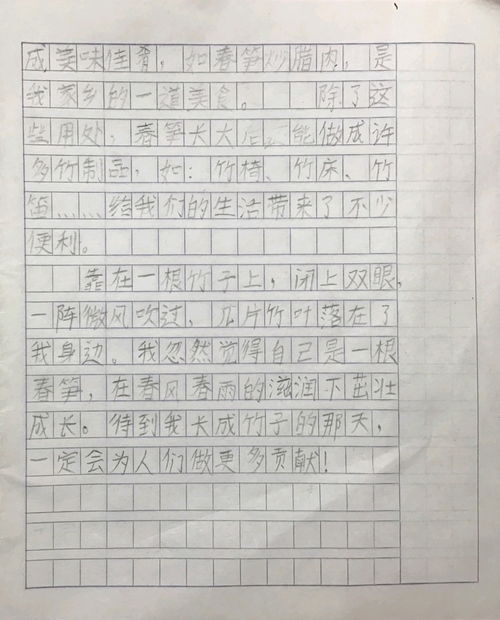 成美味佳肴，如春笋炒腊肉，是
我家乡的一道美食。 除了这
些用处，春笋长大后，能做成许
多竹制品，如：竹椅、竹床、竹
笛……给我们的生活带来了不少
便利。
靠在一根竹子上，闭上双眼，
一阵微风吹过，几片竹叶落在了
我身边。我忽然觉得自己是一根
春笋，在春风春雨的滋润下茁壮
成长。待到我长成竹子的那天，
一定会为人们做更多贡献！